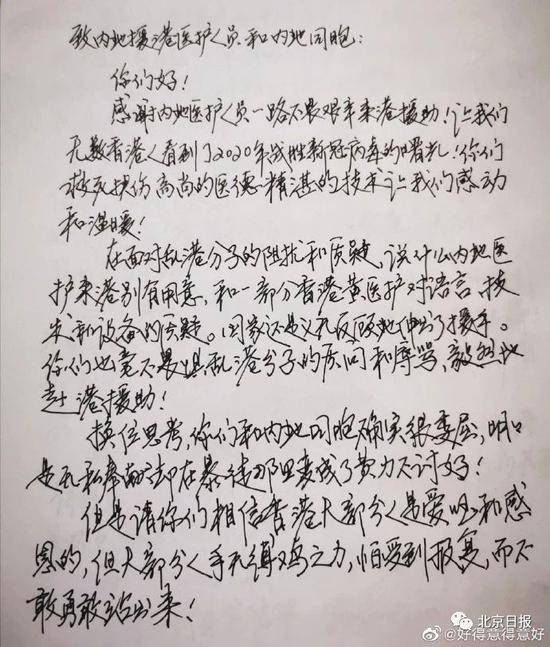 致内地援港医护人员和内地同胞：
你们好！
感谢内地医护人员一路不畏艰辛来港援助！让我们
无数香港人看到了2020年战胜新冠病毒的曙光！你们
救死扶伤高尚的医德精湛的技术让我们感动
和温暖！
在面对乱港分子的阻扰和质疑，说什么内地医
护来港别有用意，和一部分香港黄医护对语言、技
术和设备的质疑。国家还是义无反顾地伸出了援手。
你们也毫不畏惧乱港分子的质问和辱骂，毅然地
赴港援助！
换位思考，你们和内地同胞确实很委屈，明明
是无私奉献却在暴徒那里变成了费力不讨好！
但是请你们相信香港大部分人是爱国和感
恩的，但大部分人手无缚鸡之力，怕受到报复，而不
敢勇敢站出来！
北京日报
@好得意得意好